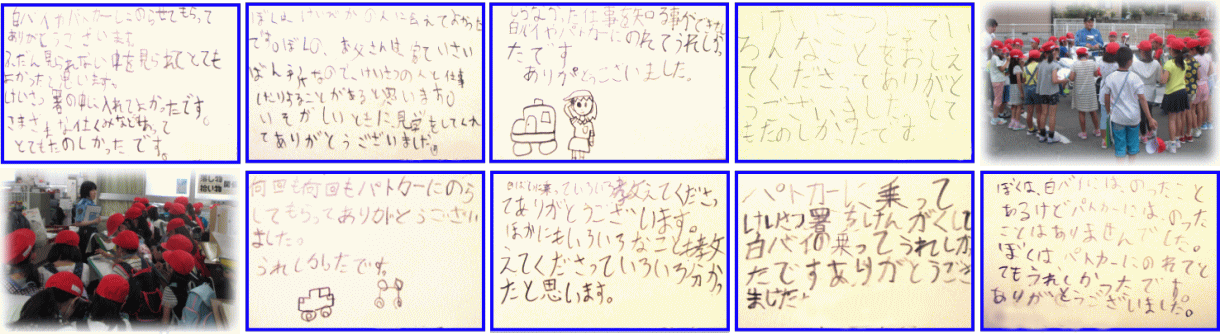 白バイやパトカーにのらせてもらって
ありがとうございます。
ふだん見られない中を見られてとても
よかったと思います。
けいさつ署の中に入れてよかったです。
さまざまな仕くみなど
とてもたのしかったです。
ぼくは、けいさつの人に会えてよかった
です。ぼくの、お父さんは
ので、けいさつの人と仕事
したりすることがあると思います。
いそがしいときに見学をしてくれ
てありがとうございました。
しらなかった仕事を知る事ができたし
白バイやパトカーにのれてうれしかっ
たです
ありがとうございました。
けいさつしょでい
ろんなことをおしえ
てくださってありがと
うございました。とて
もたのしかったです
落し物
拾い物
何回も何回もパトカーにのら
してもらってありがとうござい
ました。
うれしかったです。
教えてくださっ
てありがとうございます。
ほかにもいろいろなこと教
えてくださっていろいろ分かっ
たと思います。
パトカーに乗って
けいさつ署をけんがくして
白バイの乗ってうれしかっ
たですありがとうござい
ました
ぼくは、白バイには、のったこと
あるけどパトカーには、のった
ことはありませんでした。
ぼくは、パトカーにのれてと
てもうれしかったです。
ありがとうございました。